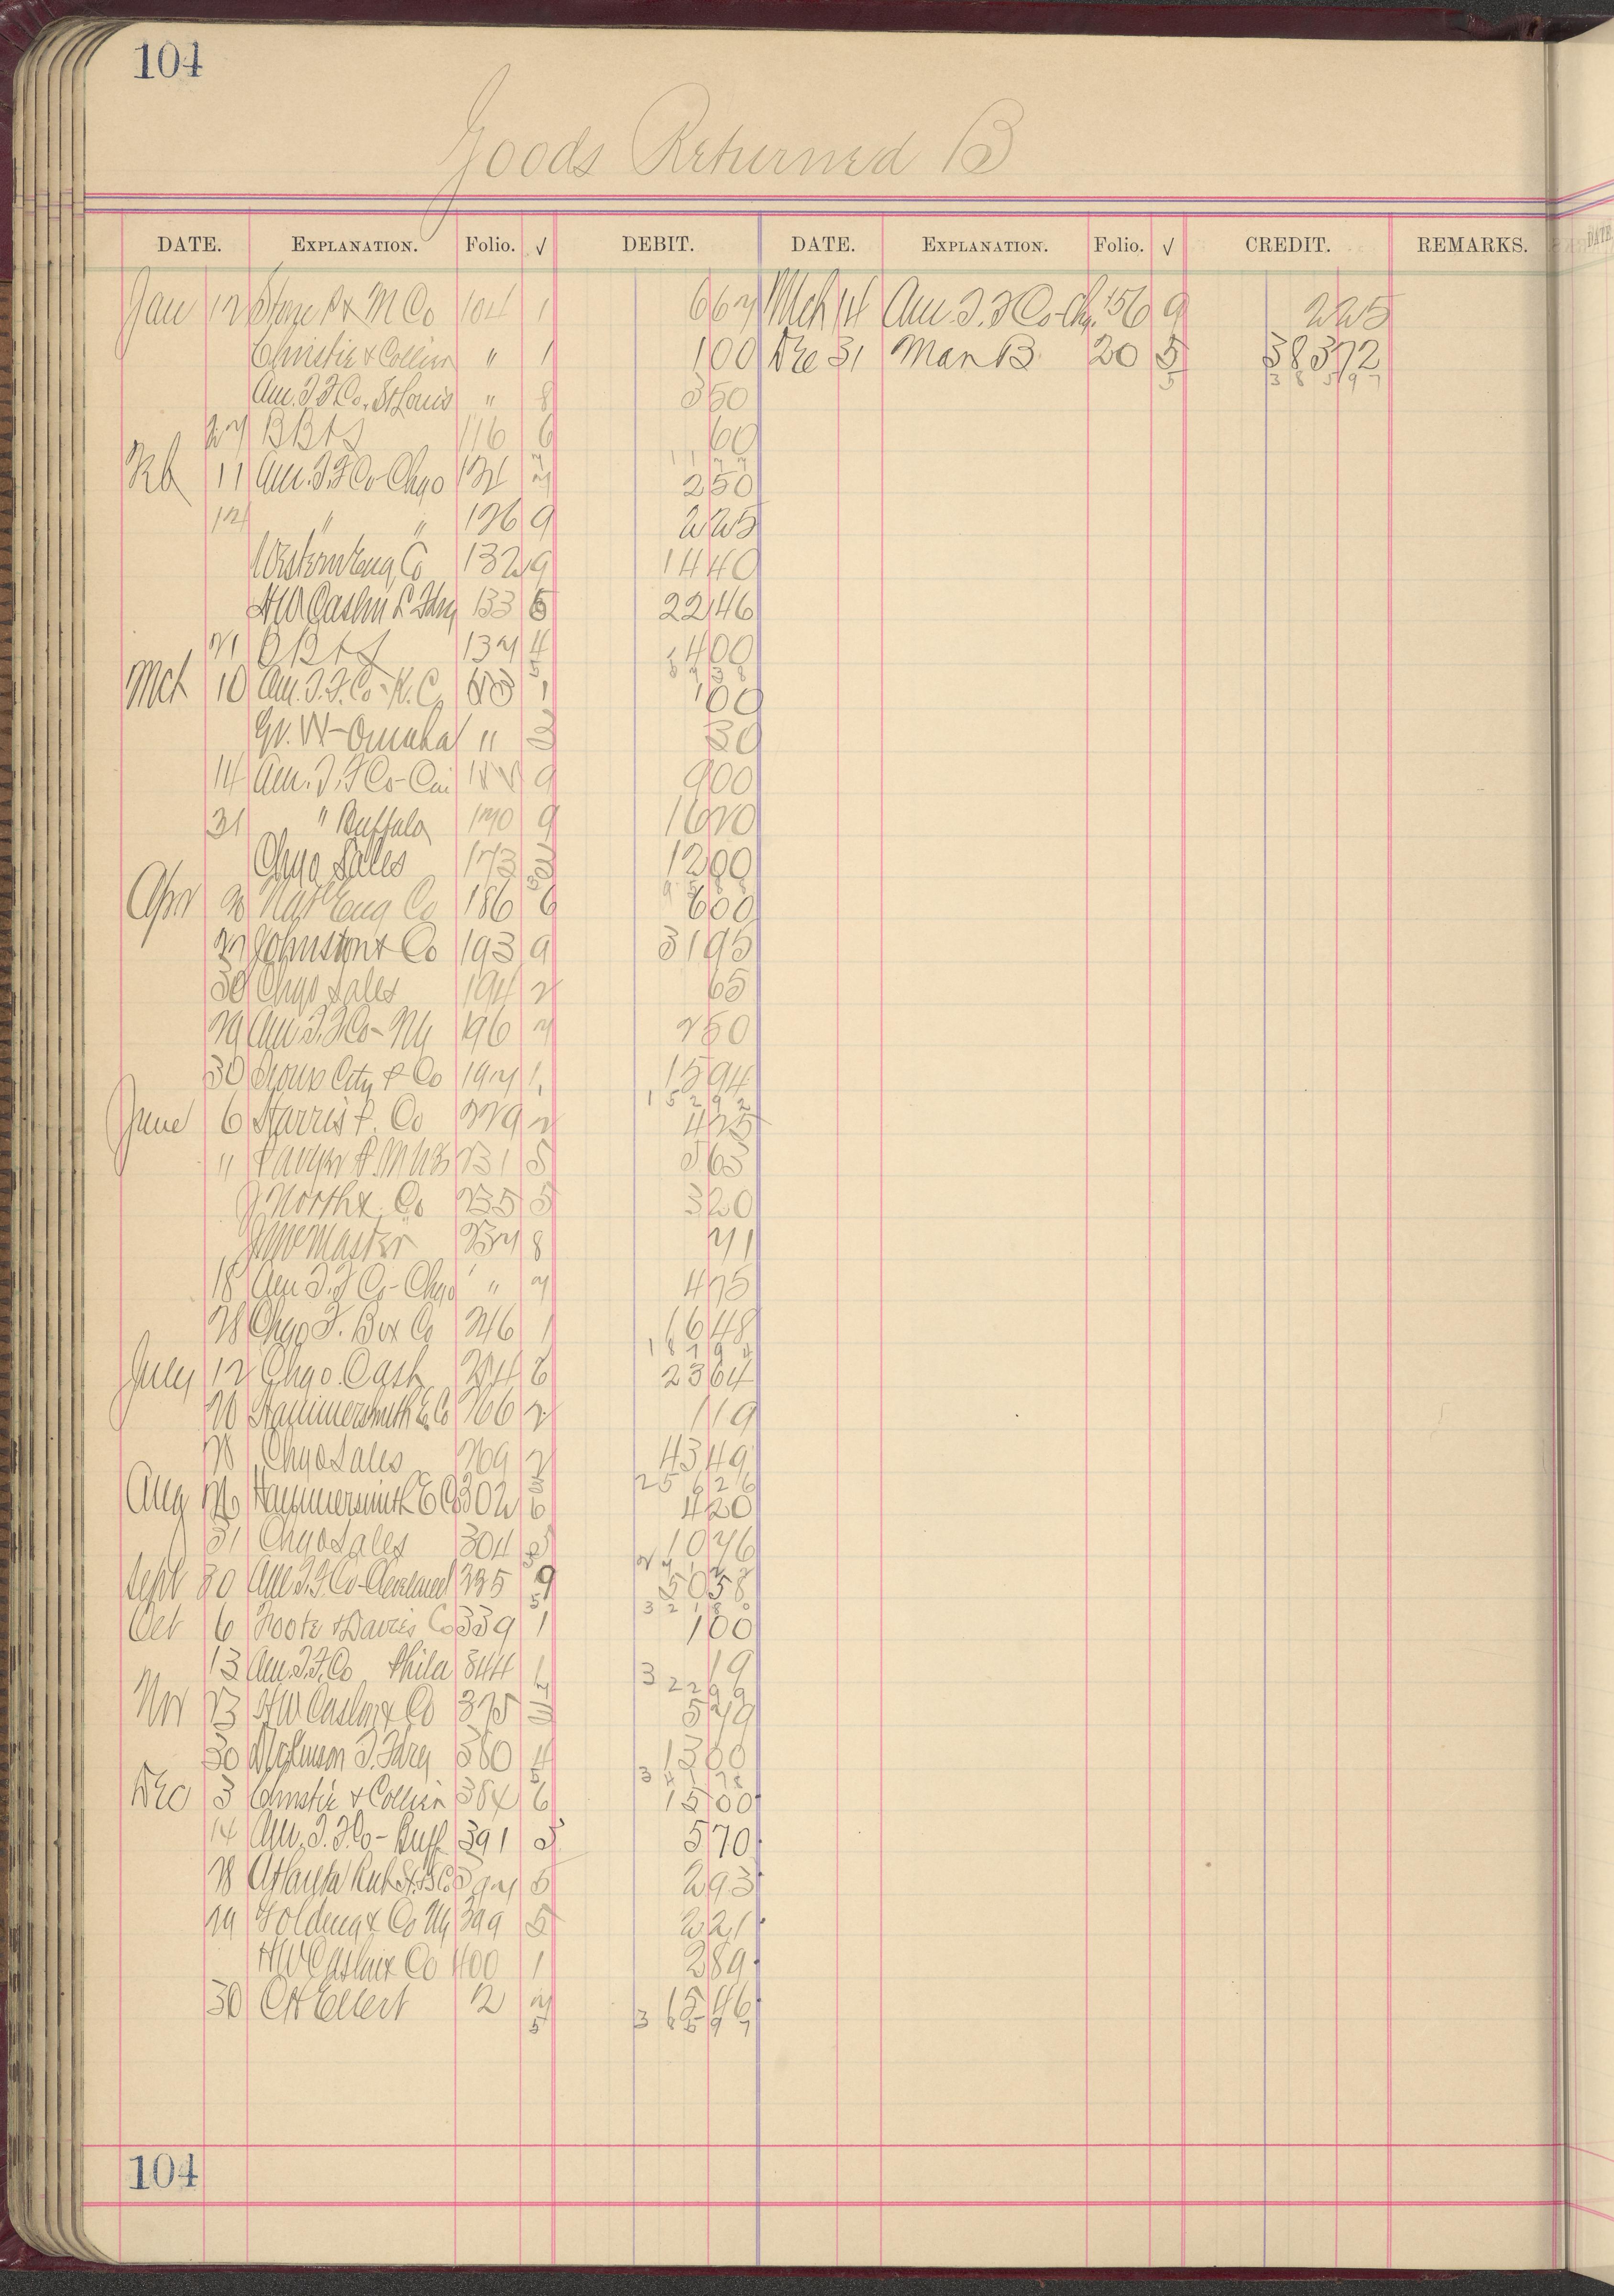 104
Goods Returned B
DATE. EXPLANATION. Folio. √ DEBIT. DATE. EXPLANATION. Folio. √ CREDIT. REMARKS.
Jan 12 M Co 104 1 667 Mch 14 Am. T. F Co-Chg. 156 9 225
Christie & Collier " 1 100 Dec 31 Man B 20 5 38372
5 38597
Am. T F Co. St Louis " 8 350
27 B B & S 116 6 60
1177
Feb 11 Am. T. F Co Chgo 124 7 250
12 " " 126 9 225
Western Eng Co 132 9 1440
H W Caslon & Fdry 133 6 2246
21 B B & S 137 4 400
5 5738
Mch 10 Am. T. F. Co - K. C. 1 100
Gr. W - Omaha " 3 30
14 Am. T. F Co - Cin 9 900
31 " Buffalo 170 9 1620
Chgo Sales 173 1200
9588
Apr Eng Co 186 6 600
27 Johnston & Co 193 9 3195
30 Chgo Sales 194 2 65
29 Am T. F Co - NY 196 7 250
30 Sioux City P Co 197 1 1594
15292
June 6 Harris P. Co 229 2 425
" 231 5 563
North & Co 235 5 320
McMaster 237 8 71
18 Am T. F Co - Chgo " 7 475
28 Chgo F. Box Co 246 1 1648
July 12 Chgo Cash 254 8 2364
20 Hammersmith E. Co 266 2 119
28 Chgo Sales 269 2 4349
25626
Aug 26 Hammersmith E Co 302 6 420
31 Chgo Sales 304 1076
Sept 30 Am T. F. Co - Cleveland 335 9 5058
5 32180
Oct 6 Foote & Davies Co 339 1 100
13 Am. T. F. Co Phila 344 1 19
32299
Nov 23 H W Caslon & Co 375 3 579
30 T. Fdry 380 4 1300
5 34178
Dec 3 Christie & Collier 384 6 1500
14 Am. T. F. Co - Buff 391 5 570
18 Atlanta 397 5 293
19 Golding & Co NY 399 5 221
H W Caslon & Co 400 1 289
30 C H Ellert 12 7 1546
5 38597
104